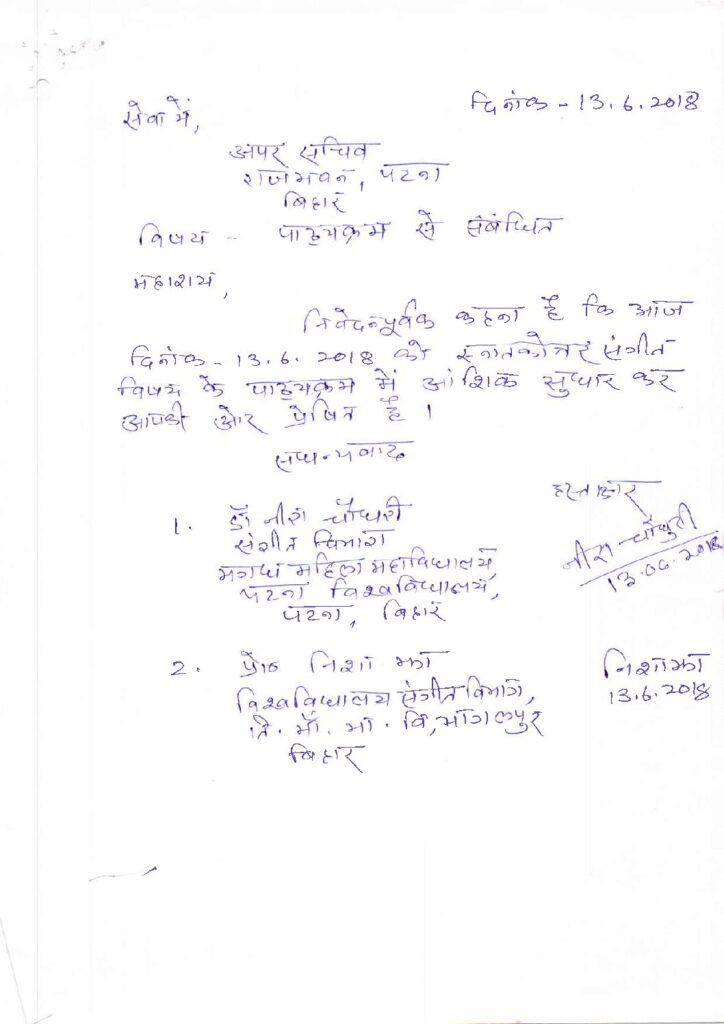 दिनांक - 13.6.2018
सेवा में,
अपर सचिव
राजभवन, पटना
बिहार
विषय - पाठ्यक्रम से संबंधित
महाशय,
निवेदनपूर्वक कहना है कि आज
दिनांक - 13.6.2018 को स्नातकोत्तर संगीत
विषय के पाठ्यक्रम में आंशिक सुधार कर
आपकी ओर प्रेषित है।
सधन्यवाद
हस्ताक्षर
1. डॉ नीरा चौधरी
संगीत विभाग
मगध महिला महाविद्यालय,
पटना विश्वविद्यालय,
पटना, बिहार
नीरा चौधुरी
13.06.2018
2. प्रो० निशा झा
विश्वविद्यालय संगीत विभाग,
ति. माँ. भा. वि, भागलपुर
बिहार
निशा झा
13.6.2018